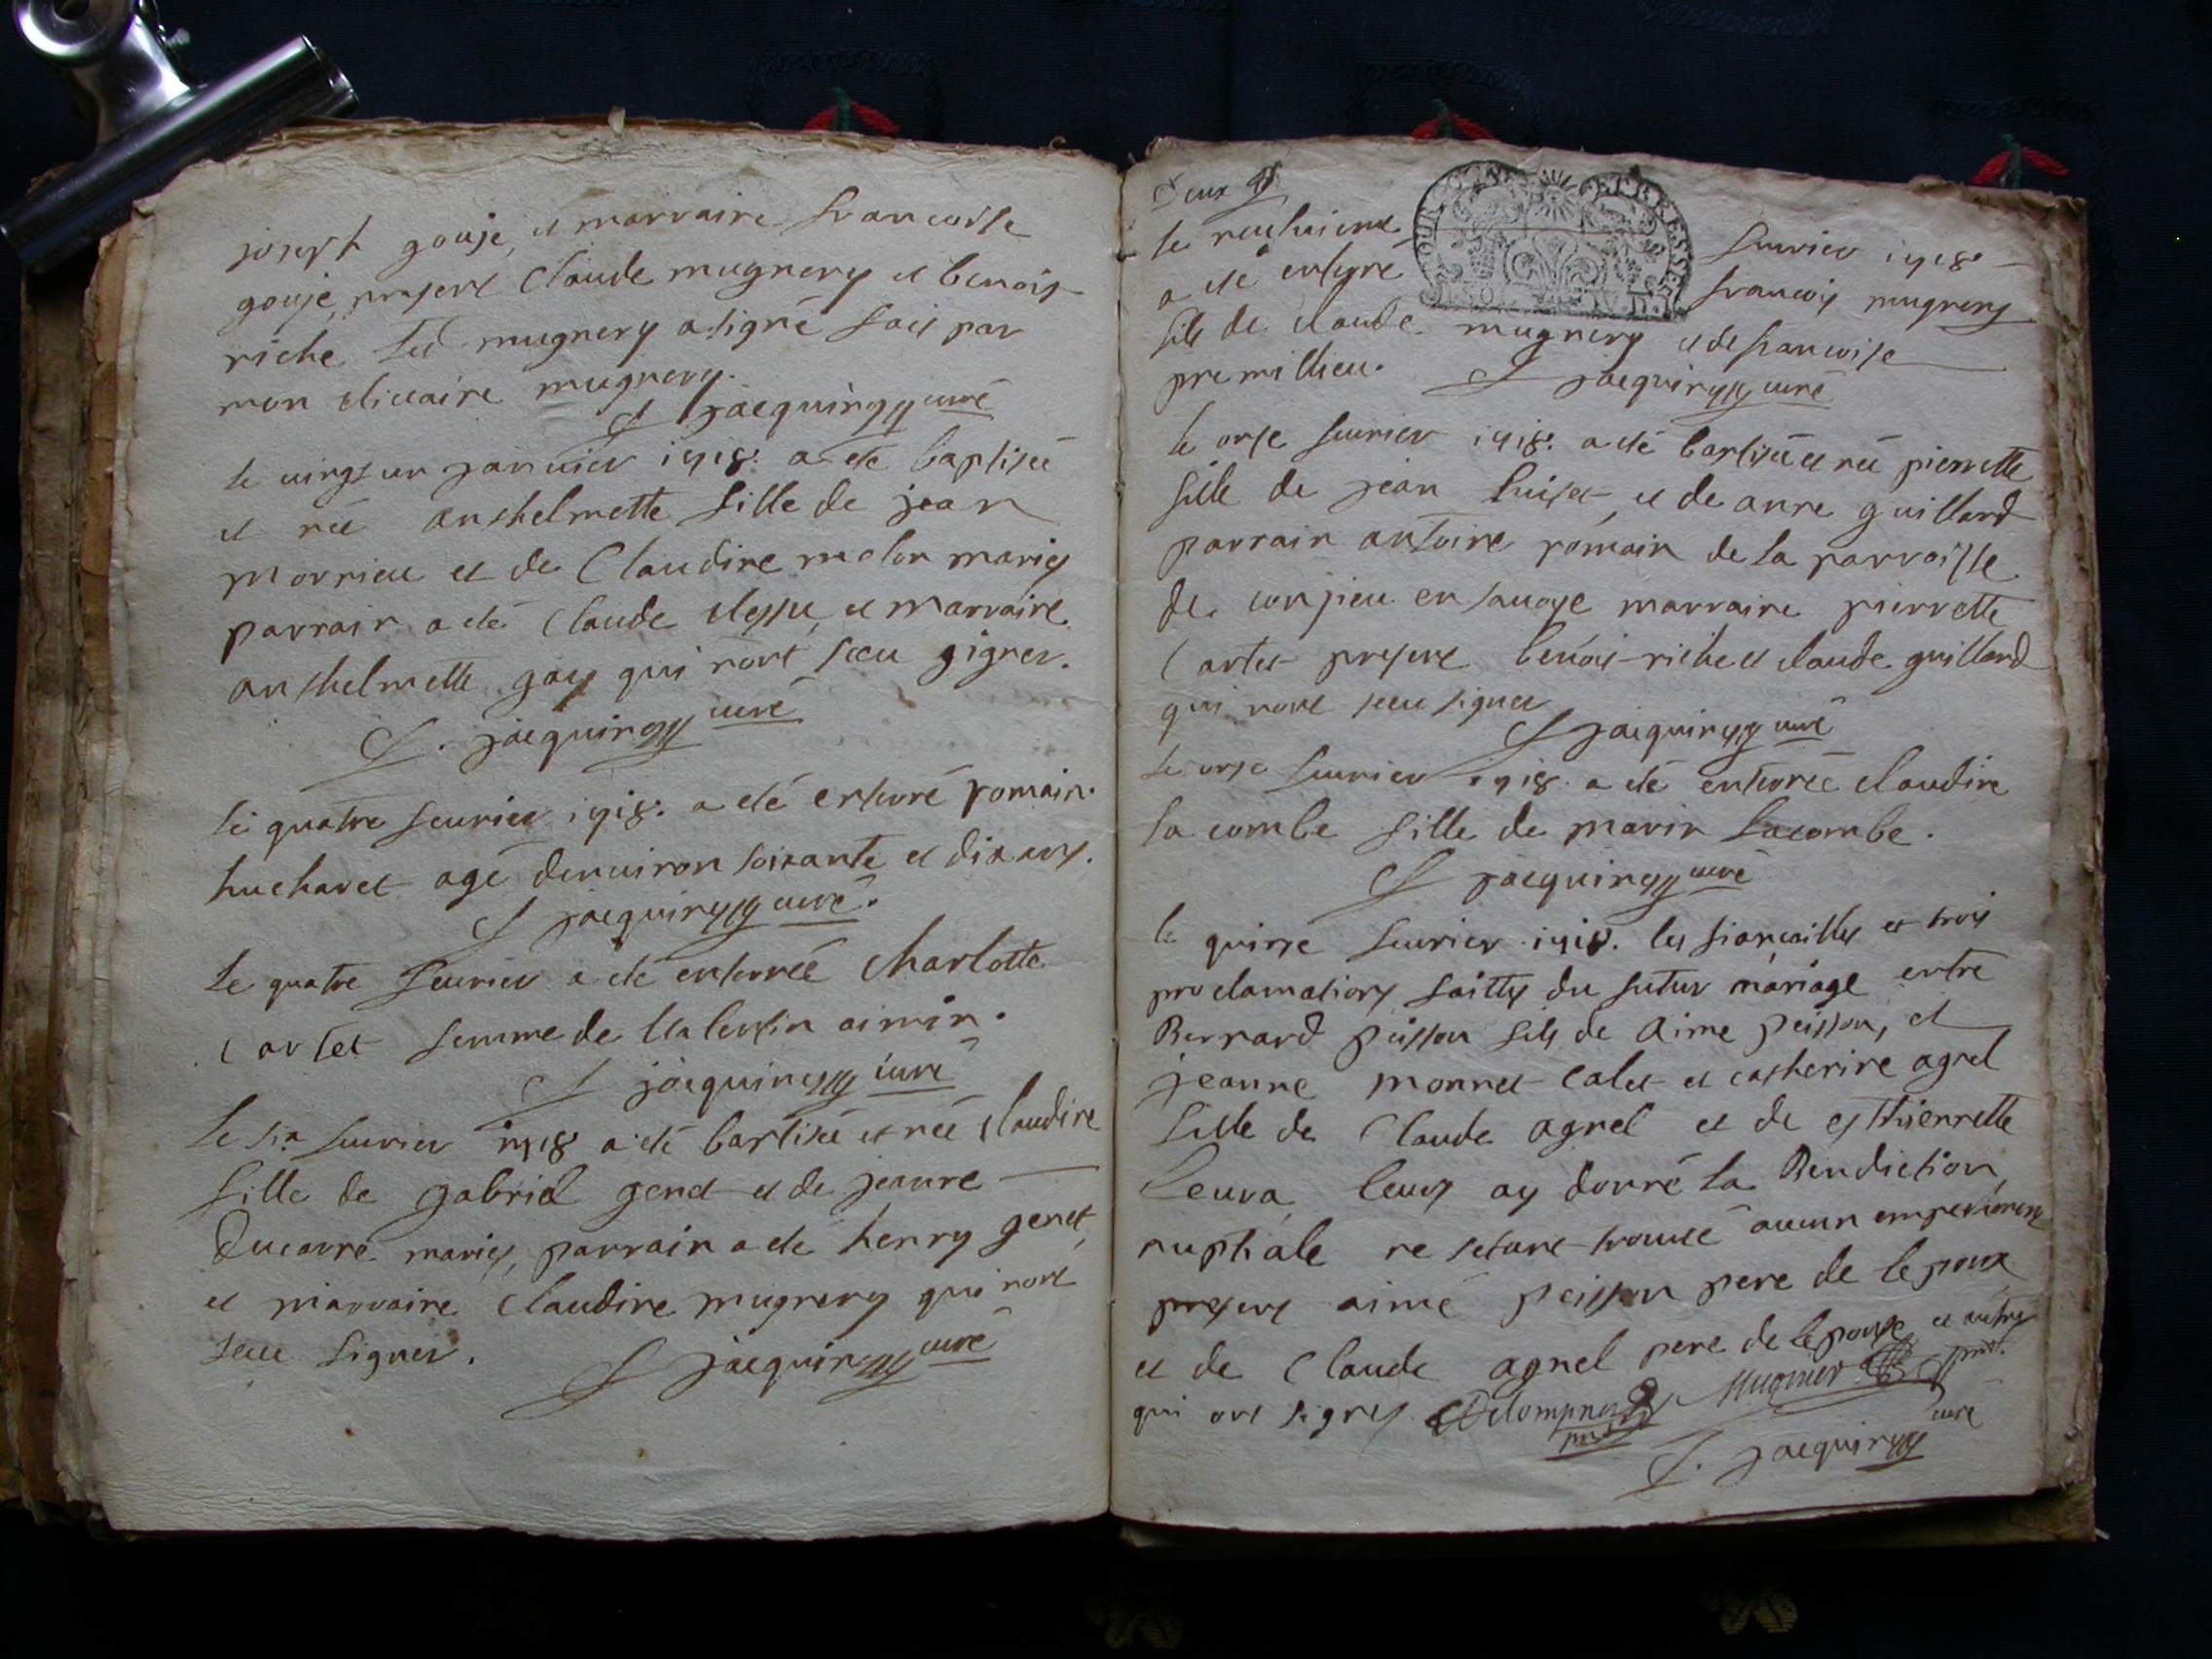 joseph gouje, et marraine francoise
gouje, presens Claude mugnery et benois
riche led mugnery a signé fais par
mon vicaire mugnery.
J jacquin curé
le vingt un janvier 1718. a été baptisée
et née anthelmette fille de jean
morrieu et de Claudine melon maries
parrain a été Claude et marraine
anthelmette goy qui nont sceu signer.
J. jacquin curé
le quatre feurier 1718. a été enterré romain
huchavet agé denuiron soixante et dix ans.
J jacquin curé.
le quatre feurier a été enterrée charlotte
cartet femme de Valentin aimin.
J jacquin curé
le six feurier 1718 a été baptisée et née claudine
fille de gabriel genet et de jeanne
ducarre maries, parrain a été henry genet,
et marraine claudine mugnery qui nont
sceu signer.
J jacquin curé
Deux
le neufuieme feurier 1718
a été enterré francois mugnery
fils de claude mugnery et de francoise
premillieu.
J jacquin curé
le onse feurier 1718. a été baptisée et née pierrette
fille de jean luiset et de anne guillard
parrain antoine romain de la parroisse
de conjieu en sauoye marraine pierrette
Cartet presens benois riche et claude guillard
qui nont sceu signer
J jacquin curé
le onse feurier 1718. a été enterrée claudine
lacombe fille de marin lacombe.
J jacquin curé
le quinse feurier 1718. les fiancailles et trois
proclamations faittes du futur mariage entre
Bernard peisson fils de aime peisson, et
jeanne monnet calet et catherine agnel
fille de Claude agnel et de esthiennette
leuva, leurs ay donné la Benediction
nuptiale ne setant trouué aucun empechement
presens aimé peisson pere de lepoux
et de Claude agnel pere de lepouse et autres
qui ont signes Delompnes Mugnier
J. jacquin curé